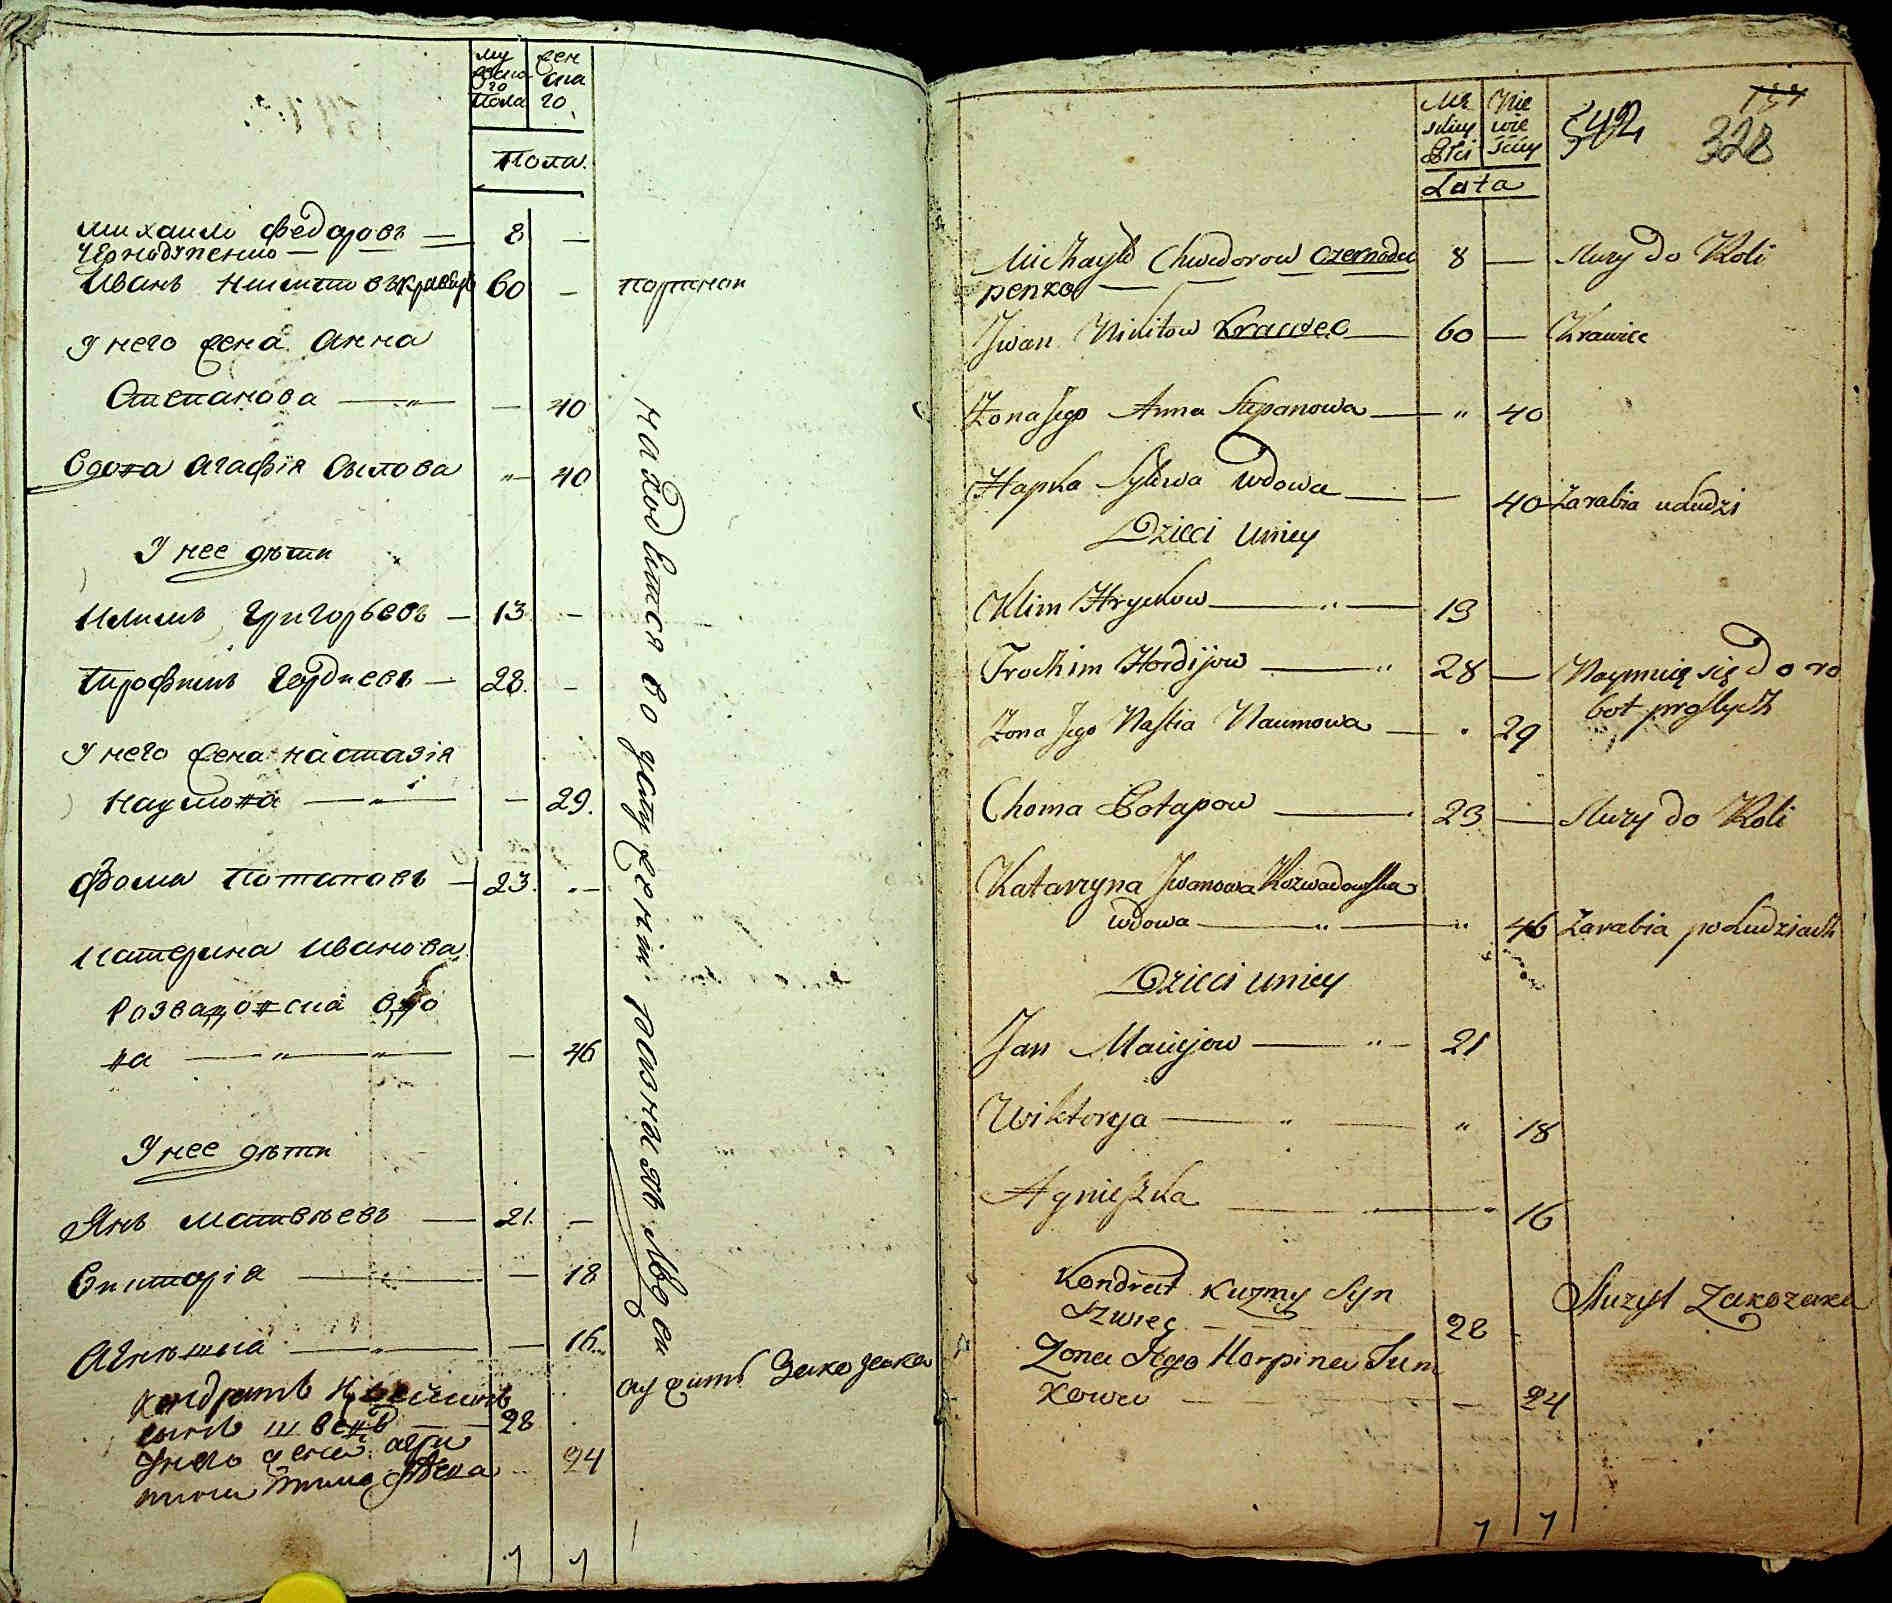 му
жеска
го
пола
жен
ска
го
Пола.
Михаило Федоровъ — 8 —
Чернодупенко —
Иванъ Никитовъ кравецъ 60 — портной
У него жена Анна
Степанова — — 40
Вдова Агафія Сылова — 40
У нее дѣти
Климъ Григорьевъ — 13 —
Трофимъ Гордіевъ — 28. —
У него жена Настазія
Наумова — — 29.
Фома Потаповъ — 23. —
Катерина Иванова
Розвадовска вдо
ва — — 46
У нее дѣти
Янъ Матвѣевъ — 21. —
Викторія — — 18
Агнѣшка — — 16.
Кондратъ
сынъ швецъ — 28
У него жена Агри
пина 24
находятся во услуженіи разныхъ людей
служитъ За козака
7 7
Mę
skiey
Płci
Nie
wie
sciey
Lata
542
328
Michayło Chwedorow Czernodu 8 — Słuzy do Roli
penko — —
Jwan Nikitow Krawiec — 60 — Krawiec
Zona Jego Anna Stepanowa — " 40
Hapka Syłowa Wdowa — — 40 Zarabia u Ludzi
Dzieci Uniey
Klim Hryckow — " — 13
Trochim Hordijow — " 28 — Naymuię się do ro
bot
Zona Jego Nastia Naumowa — 29
Choma Potapow — 23 — Słuzy do Roli
Katarzyna Jwanowa Rozwadowska
wdowa — " — " 46 Zarabia po Ludziach
Dzieci uniey
Jan Maciejow — " — 21
Wiktorya — " — " 18
Agnieszka — — " 16
Kondrat Kuzmy Syn Słuzył Zakozaka
Szwiec — 28
Zona Jego Horpina Tim
kowa — — 24
7 7